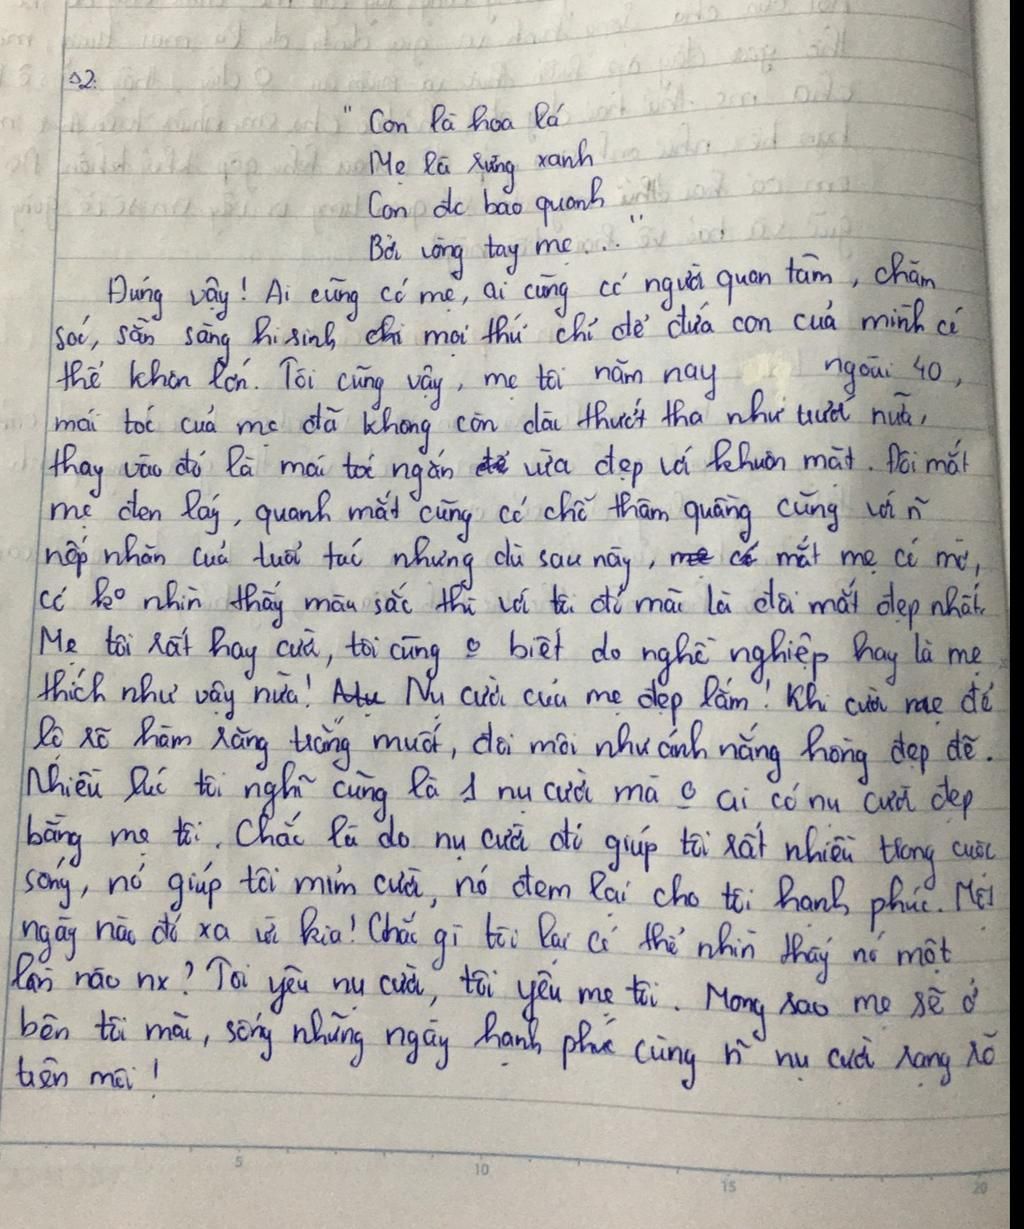 02:
" Con là hoa lá
Mẹ là rừng xanh
Con đc bao quanh
Bởi vòng tay mẹ... "
Đúng vậy! Ai cũng có mẹ, ai cũng có người quan tâm, chăm
sóc, sẵn sàng hi sinh chi mọi thứ chỉ để đứa con của mình có
thể khôn lớn. Tôi cũng vậy, mẹ tôi năm nay ngoài 40,
mái tóc của mẹ đã không còn dài thướt tha như trước nữa,
thay vào đó là mái tóc ngắn vừa đẹp với khuôn mặt. Đôi mắt
mẹ đen láy, quanh mắt cũng có chỗ thâm quầng cùng với ñ
nếp nhăn của tuổi tác nhưng dù sau này, mắt mẹ có mờ,
có ko nhìn thấy màu sắc thì với tôi đó mãi là đôi mắt đẹp nhất.
Mẹ tôi rất hay cười, tôi cũng o biết do nghề nghiệp hay là mẹ
thích như vậy nữa! Nụ cười của mẹ đẹp lắm! Khi cười mẹ để
lộ rõ hàm răng trắng muốt, đôi môi như ánh nắng hồng đẹp đẽ.
Nhiều lúc tôi nghĩ cũng là 1 nụ cười mà o ai có nụ cười đẹp
bằng mẹ tôi. Chắc là do nụ cười đó giúp tôi rất nhiều trong cuộc
sống, nó giúp tôi mỉm cười, nó đem lại cho tôi hạnh phúc. Một
ngày nào đó xa vời kia! Chắc gì tôi lại có thể nhìn thấy nó một
lần nào nx? Tôi yêu nụ cười, tôi yêu mẹ tôi. Mong sao mẹ sẽ ở
bên tôi mãi, sống những ngày hạnh phúc cùng ñ nụ cười rạng rỡ
trên môi!
5 10 15 20